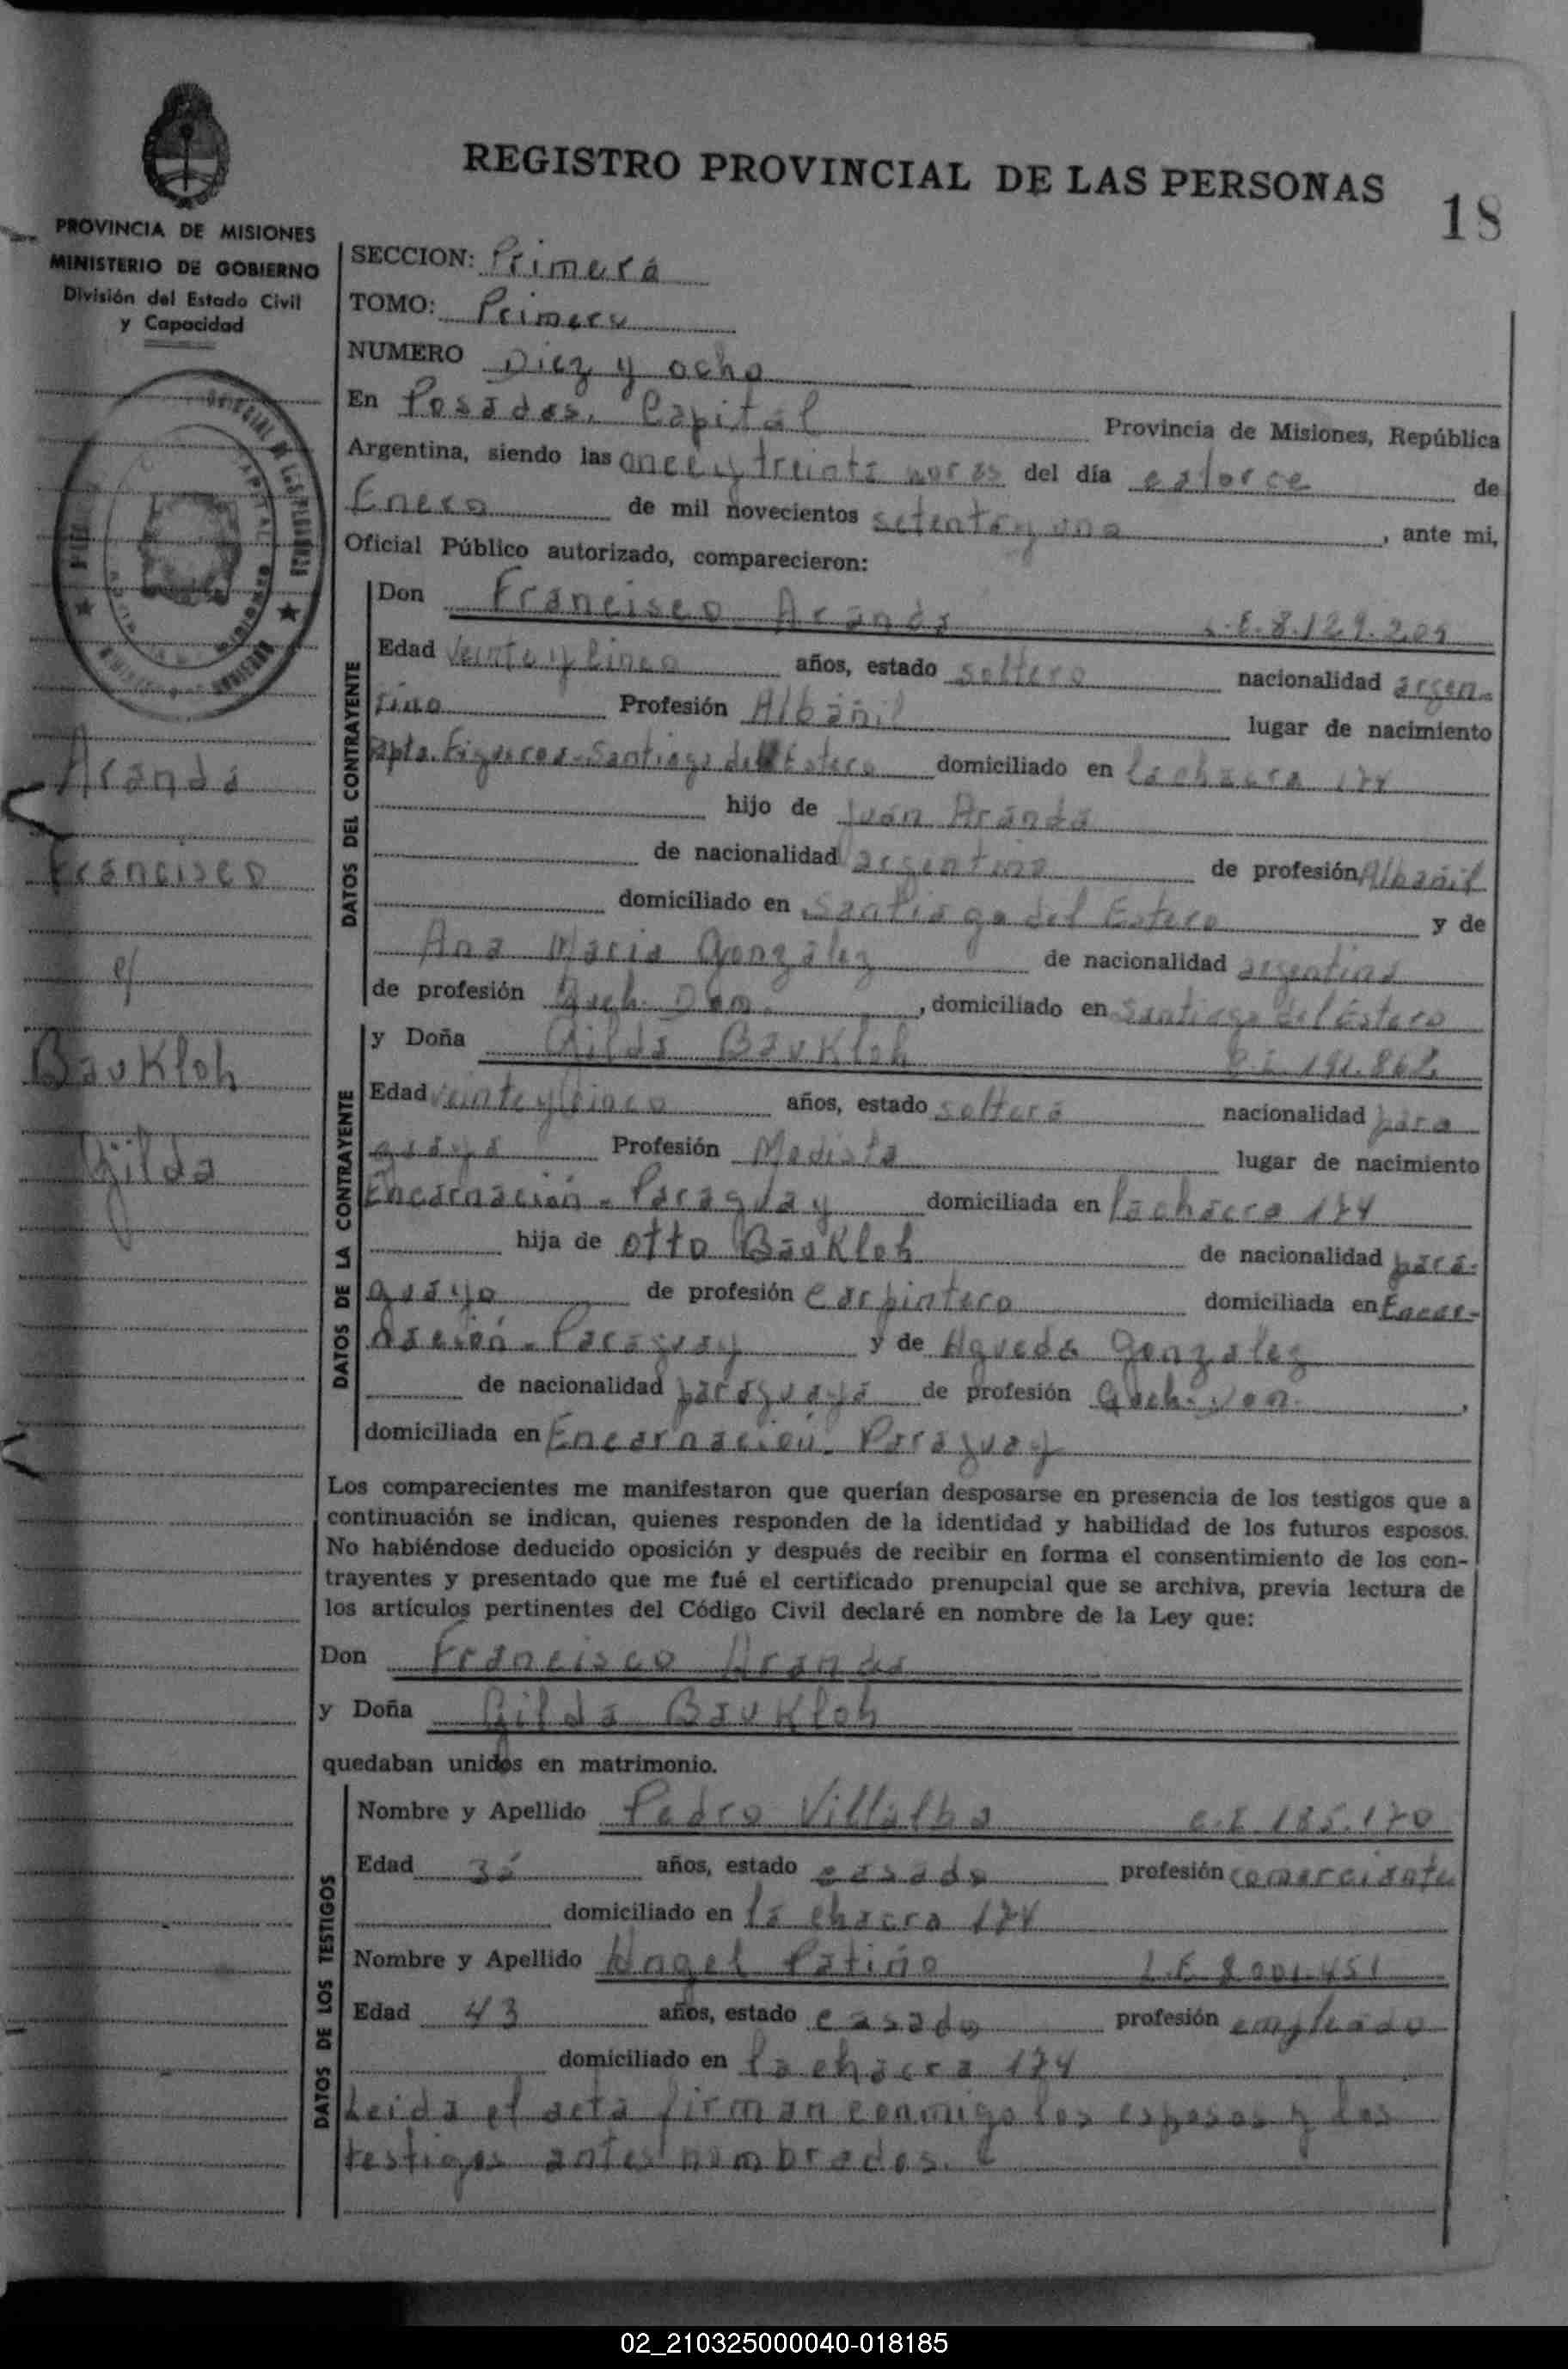 REGISTRO PROVINCIAL DE LAS PERSONAS
18
PROVINCIA DE MISIONES
MINISTERIO DE GOBIERNO
División del Estado Civil
y Capacidad
SECCION: Primera
TOMO: Primero
NUMERO Diez y ocho
En Posadas. Capital Provincia de Misiones, República
Argentina, siendo las once y treinta horas del día catorce de
Enero de mil novecientos setenta y uno, ante mi,
Oficial Público autorizado, comparecieron:
Aranda
Francisco
c/
Baukloh
Gilda
DATOS DEL CONTRAYENTE
Don Francisco Aranda L.E. 8.129.209
Edad veinte y cinco años, estado soltero nacionalidad argen-
tino Profesión Albañil lugar de nacimiento
Dpto. Figueroa - Santiago del Estero domiciliado en la chacra 174
hijo de Juan Aranda
de nacionalidad argentino de profesión Albañil
domiciliado en Santiago del Estero y de
Ana Maria Gonzalez de nacionalidad argentina
de profesión Queh. Dom., domiciliado en Santiago del Estero
DATOS DE LA CONTRAYENTE
y Doña Gilda Baukloh C.I. 191.862
Edad veinte y cinco años, estado soltera nacionalidad para
guaya Profesión Modista lugar de nacimiento
Encarnación - Paraguay domiciliada en la chacra 174
hija de Otto Baukloh de nacionalidad para-
guayo de profesión Carpintero domiciliada en Encar-
nación - Paraguay y de Agueda Gonzalez
de nacionalidad paraguaya de profesión Queh. Dom.,
domiciliada en Encarnación. Paraguay
Los comparecientes me manifestaron que querían desposarse en presencia de los testigos que a
continuación se indican, quienes responden de la identidad y habilidad de los futuros esposos.
No habiéndose deducido oposición y después de recibir en forma el consentimiento de los con-
trayentes y presentado que me fué el certificado prenupcial que se archiva, previa lectura de
los artículos pertinentes del Código Civil declaré en nombre de la Ley que:
Don Francisco Aranda
y Doña Gilda Baukloh
quedaban unidos en matrimonio.
DATOS DE LOS TESTIGOS
Nombre y Apellido Pedro Villalba C.I. 185.170
Edad años, estado casado profesión comerciante
domiciliado en la chacra 174
Nombre y Apellido Angel Patiño L.E. 8001.451
Edad 43 años, estado casado profesión empleado
domiciliado en la chacra 174
Leida el acta firman conmigo los esposos y los
testigos antes nombrados.
02_210325000040-018185